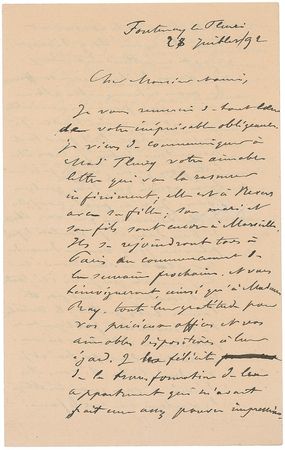 Fontenay le Fleury
28 Juillet/92
Cher Monsieur
Je vous remercie de tout cœur
de votre inépuisable obligeance
je viens de communiquer à
Mad. Fleury votre aimable
lettre qui va la rassurer
infiniment; elle est à
avec sa fille; son mari et
son fils sont encore à Marseille.
Ils se rejoindront tous à
Paris au commencement de
la semaine prochaine. et vous
témoigneront ainsi qu'à Madame
toute leur gratitude pour
vos précieux offices et vos
aimables dispositions à leur
égard. Je les félicite
de la transformation de leur
appartement qui m'avait
fait une assez pauvre impression